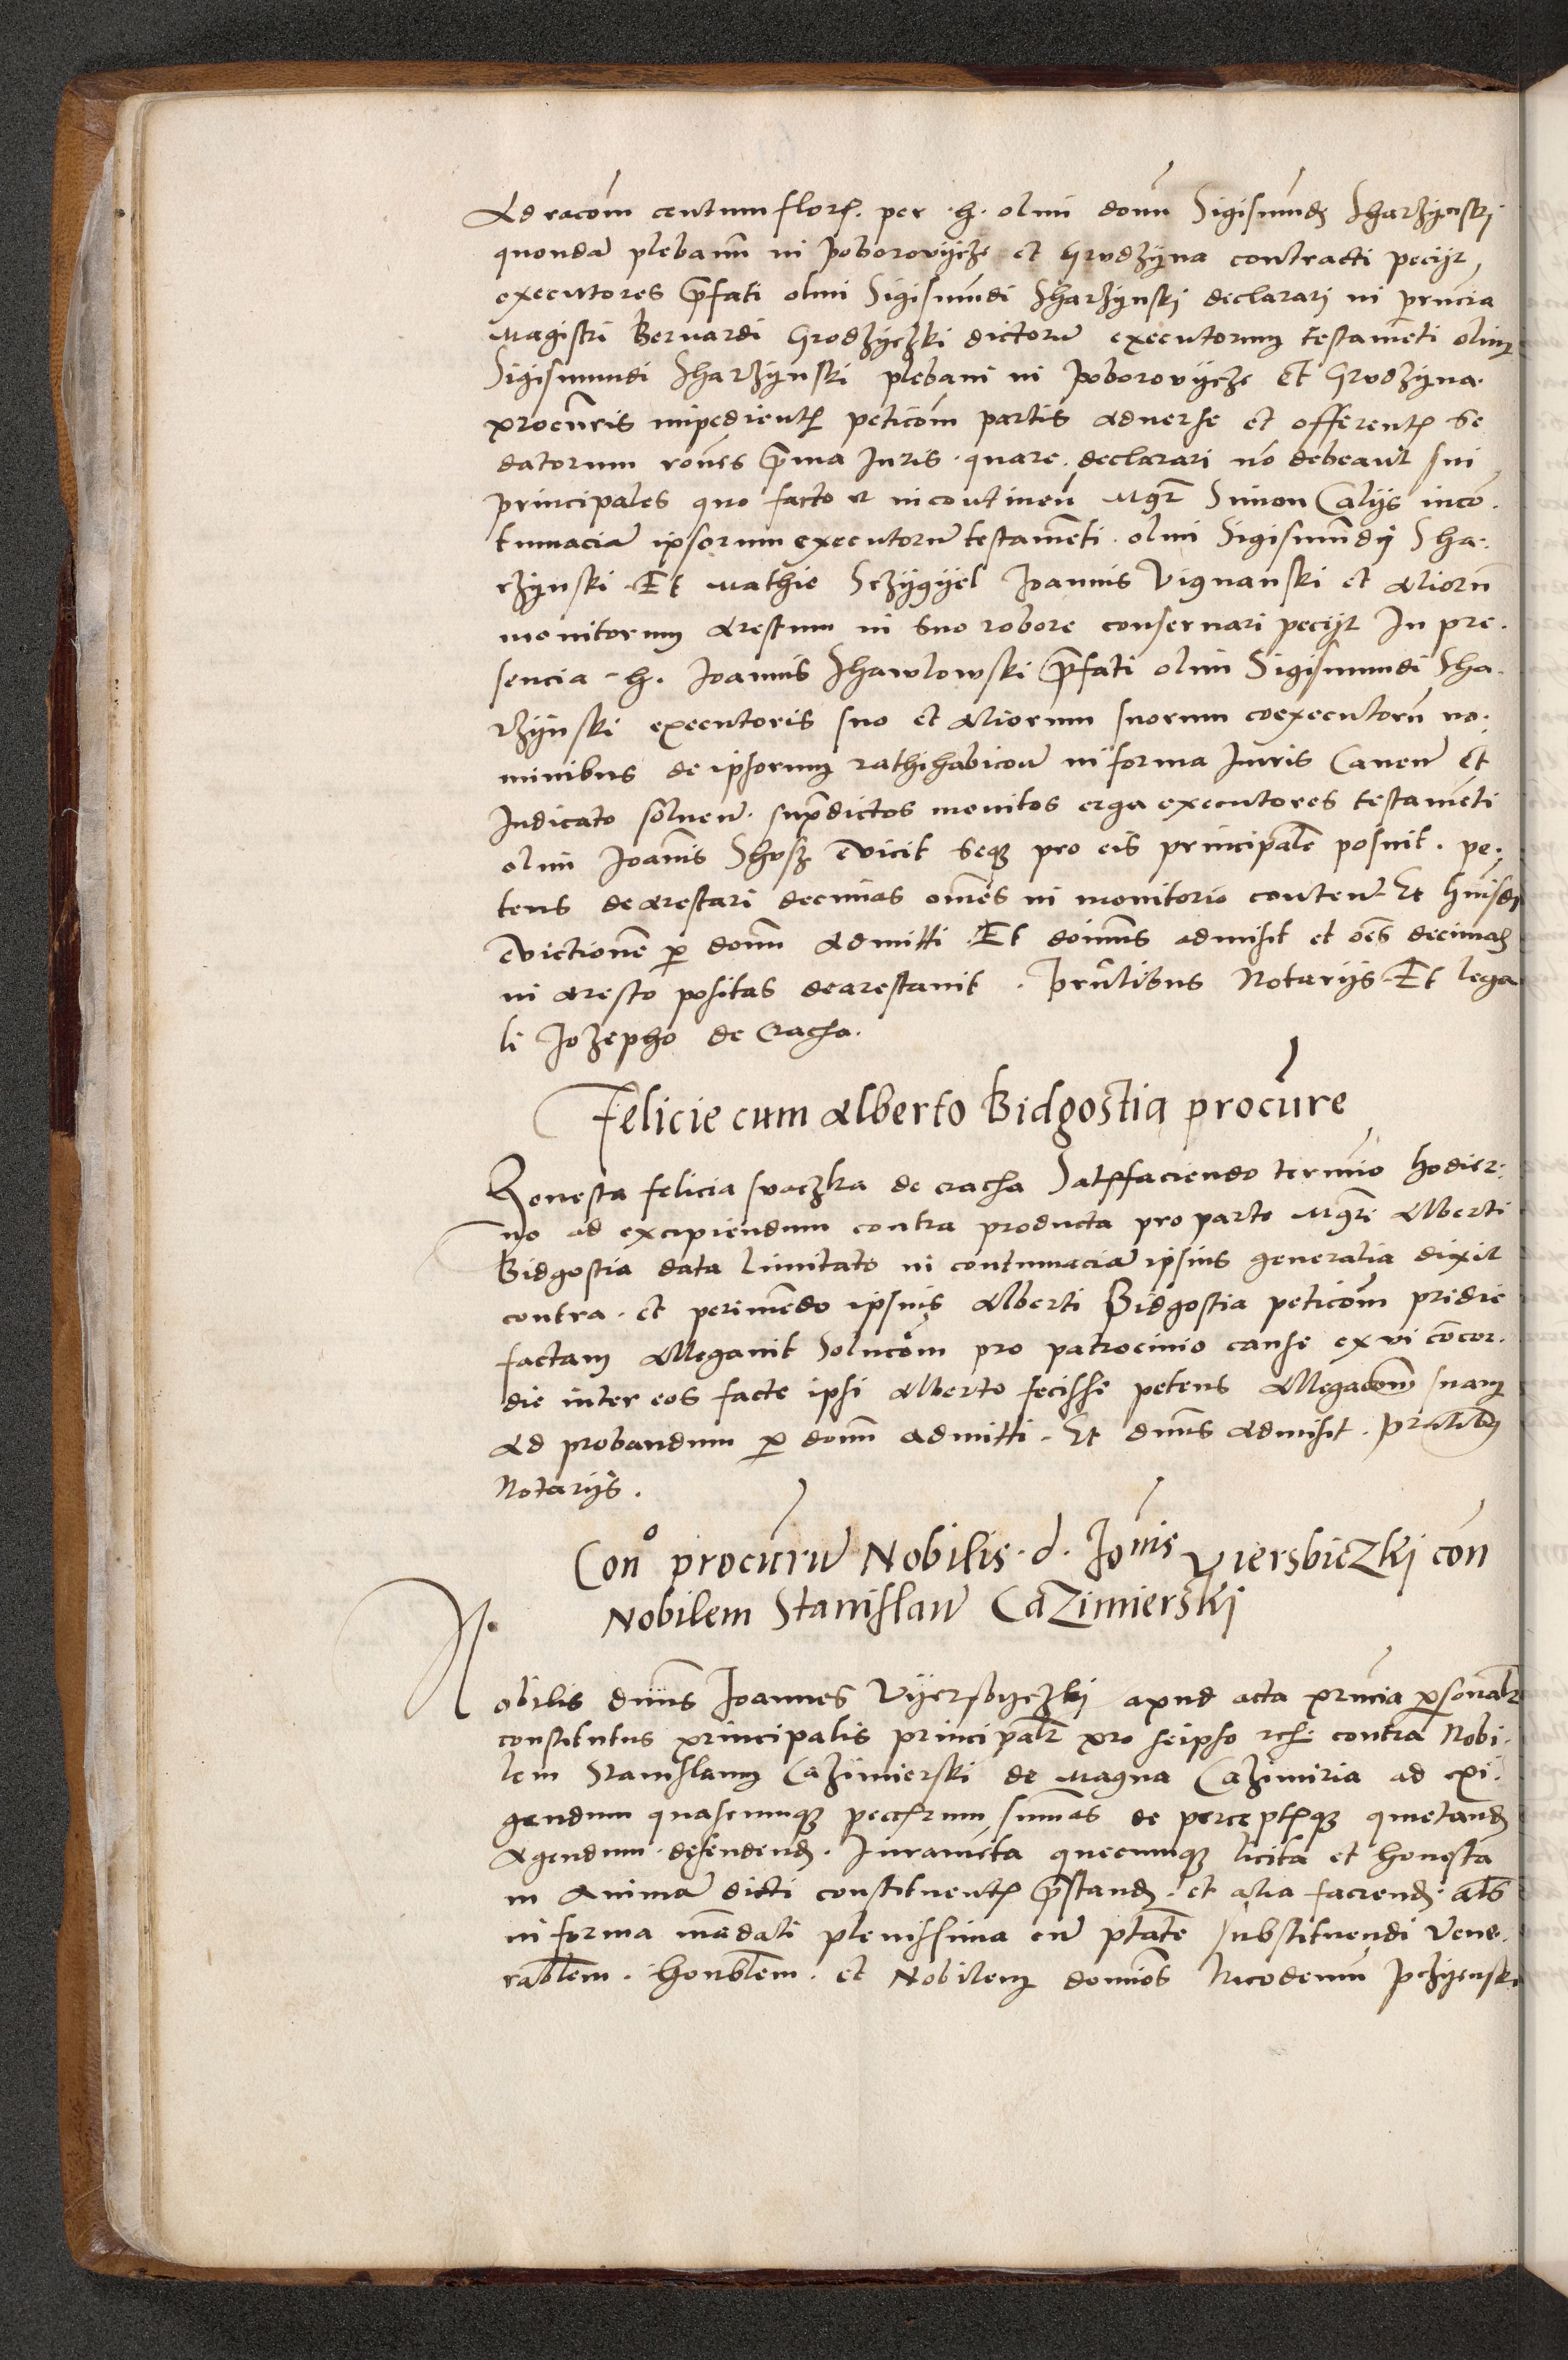 Ad racom centum flor. per .h. olim domi Sigismundi Skarzynski
quonda plebanu in poborovycze et Grudzyna contracti pecijt
executores pfati olim Sigismudi Skarzynski declarari in pruncia
Magistri Bernardi Grodzyczki dictoru executorum testameti olim
Sigismundi Skarzynski plebani in poborovycze Et Grudzyna.
procuris impedient peticom partis aduerse et offerent se
datorum rones pma Iuris . quare . declarari no debeant sui
principales quo facto et incontinen Mgr Simon Calijs inco.
tumacia ipsorum executoru testameti . olim Sigismundj Ska.
rzynski . Et Mathie Sczygyel Joannis Vignanski et alioru
monitorum arestum in suo robore conseruari pecijt In pre.
sencia .h. Joannis Skawlowski pfati olim Sigismundi Ska.
rzynski executoris suo et aliorum suorum coexecutoru no.
minibus de ipsorum rathihabicon in forma Iuris Cauen Et
Iudicato soluen . supdictos monitos erga executores testameti
olim Joanis evicit seq pro eis principale posuit . pe.
tens dearestari decimas omes in monitorio conten Et huismdi
evictione p domi admitti . Et domus admisit et oes decimas
in aresto positas dearestauit . prntibus Notarijs . Et lega
li Jozepho de Cracha.
Felicie cum Alberto Bidgostia procure
Honesta felicia svaczka de cracha Satisfaciendo termio hodier.
no ad excipiendum contra producta pro parte Mgri Alberti
Bidgostia data limitato in contumacia ipsius generalia dixit
contra . et perimedo ipsius Alberti Bidgostia peticom pridie
factam Allegauit Solucom pro patrocinio cause ex vi cocor.
die inter eos facte ipsi Alberto fecisse petens Allegacom suam
ad probandum p domi admitti . Et dnus admisit . prntibus
Notarijs .
Con° procuru Nobilis . d . Jois Viersbiczkj con
Nobilem Stanislau Cazimierskj
Nobilis dnus Joannes Vyersbyczkj apud acta pruncia psonalr
constitutus principalis principalr pro seipso contra Nobi.
lem Stanislaum Cazimierski de Magna Cazimiria ad exi.
gendum quascumq pecc sumas de perceptisq quietand
agendum . defendend . Iurameta quecumq licita et honesta
in anima dicti constituent pstand . et alia faciend . als
in forma madati plenissima cu ptate substituendi Vene.
rablem . honblem . et Nobilem domios Nicodemu